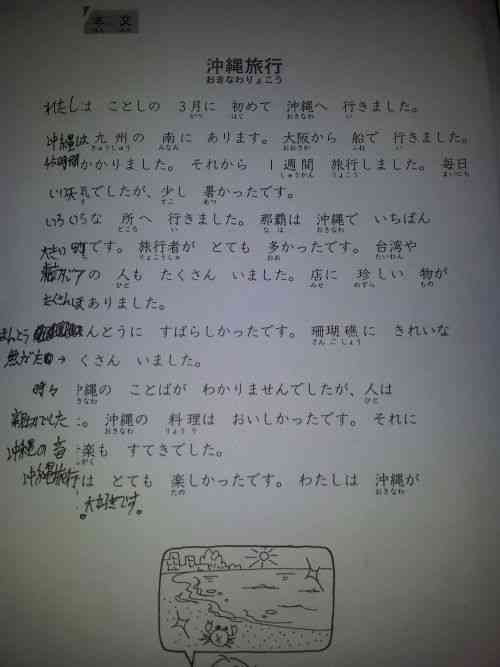 本 文
沖縄旅行
おきなわりょこう
わたしは ことしの 3月に 初めて 沖縄へ 行きました。
がつ はじ おきなわ い
沖縄は 九州の 南に あります。 大阪から 船で 行きました。
きゅうしゅう みんなみ おおさか ふね い
時間 かかりました。 それから 1週間 旅行しました。 毎日
しゅうかん りょこう まいにち
いい天気でしたが、少し 暑かったです。
すこ あつ
いろいろな 所へ 行きました。 那覇は 沖縄で いちばん
ところ い なは おきなわ
大きい 町です。 旅行者が とても 多かったです。 台湾や
りょこうしゃ おお たいわん
アジアの 人も たくさん いました。 店に 珍しい 物が
ひと みせ めずら もの
たくさん ありました。
ほんとうに すばらしかったです。 珊瑚礁に きれいな
さんごしょう
魚がた → くさん いました。
時々 沖縄の ことばが わかりませんでしたが、人は
きなわ ひと
親切でした 。 沖縄の 料理は おいしかったです。 それに
おきなわ りょうり
沖縄の 音 楽も すてきでした。
がく
沖縄旅行は とても 楽しかったです。 わたしは 沖縄が
たの おきなわ
大好きです。